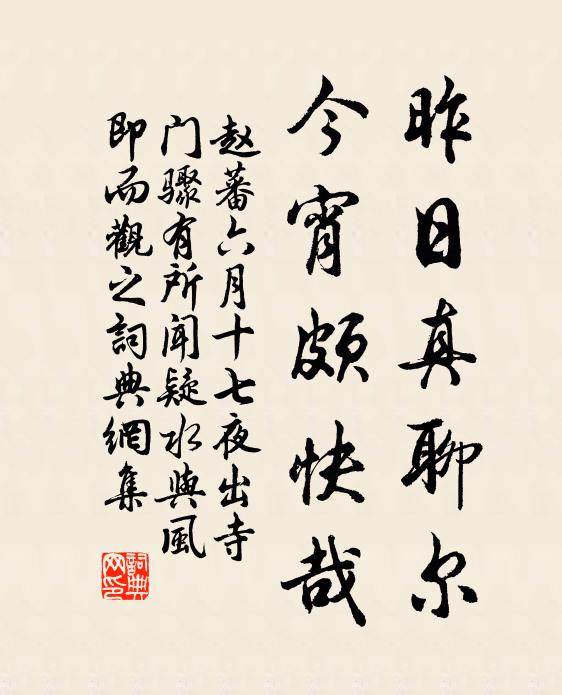 昨日真聊尔
今宵颇快哉
赵蕃六月十七夜出寺
门骤有所闻疑水與風
即而觀之詞典網集
詞典
网印